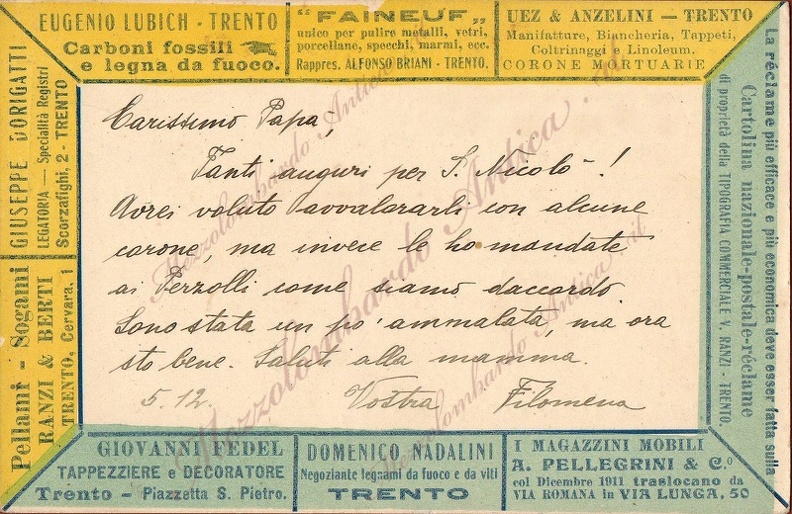 EUGENIO LUBICH - TRENTO
Carboni fossili
e legna da fuoco.
"FAINEUF"
unico per pulire metalli, vetri,
porcellane, specchi, marmi, ecc.
Rappres. ALFONSO BRIANI - TRENTO.
UEZ & ANZELINI — TRENTO
Manifatture, Biancheria, Tappeti,
Coltrinaggi e Linoleum.
CORONE MORTUARIE
GIUSEPPE DORIGATTI
LEGATORIA — Specialità Registri
Scorzafighi, 2 - TRENTO
Pellami - Sogami
RANZI & BERTI
TRENTO, Cervara, 1
Carissimo Papa,
Tanti auguri per S. Nicolò!
Avrei voluto avvalorarli con alcune
corone, ma invece le ho mandate
ai Pezzolli come siamo daccordo.
Sono stata un po' ammalata, ma ora
sto bene. Saluti alla mamma.
5.12. Vostra Filomena
La réclame più efficace e più economica deve esser fatta sulla
Cartolina nazionale-postale-réclame
di proprietà della TIPOGRAFIA COMMERCIALE V. RANZI - TRENTO.
GIOVANNI FEDEL
TAPPEZZIERE e DECORATORE
Trento - Piazzetta S. Pietro.
DOMENICO NADALINI
Negoziante legnami da fuoco e da viti
TRENTO
I MAGAZZINI MOBILI
A. PELLEGRINI & C.º
col Dicembre 1911 traslocano da
VIA ROMANA in VIA LUNGA, 50
Mezzolombardo Antica.it
Mezzolombardo Antica.it
Mezzolombardo Antica.it